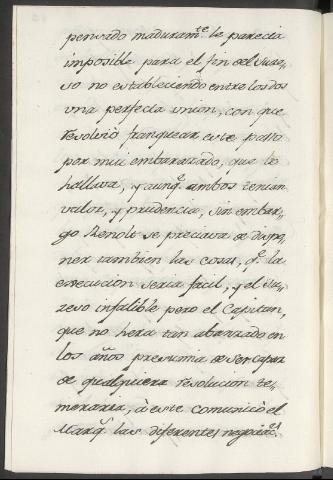 pensado maduramte le parecia
imposible para el fin del suze,,
so no estableciendo entre los dos
vna perfecta vnion, con que
resolvio franquear este passo
por mui embarazado, que lo
hallava, y aunq. ambos tenian
valor, y prudencia, sin embar,,
go Renolt se preciava de dispo,,
ner tambien las cosas, q.e la
execucion seria facil, y el su,,
zeso infalible pero el Capitan,
que no hera tan abanzado en
los años presumia de ser capaz
de qualquiera resolucion te,,
meraria, à este comunicò el
Marq.s las diferentes negociac.s